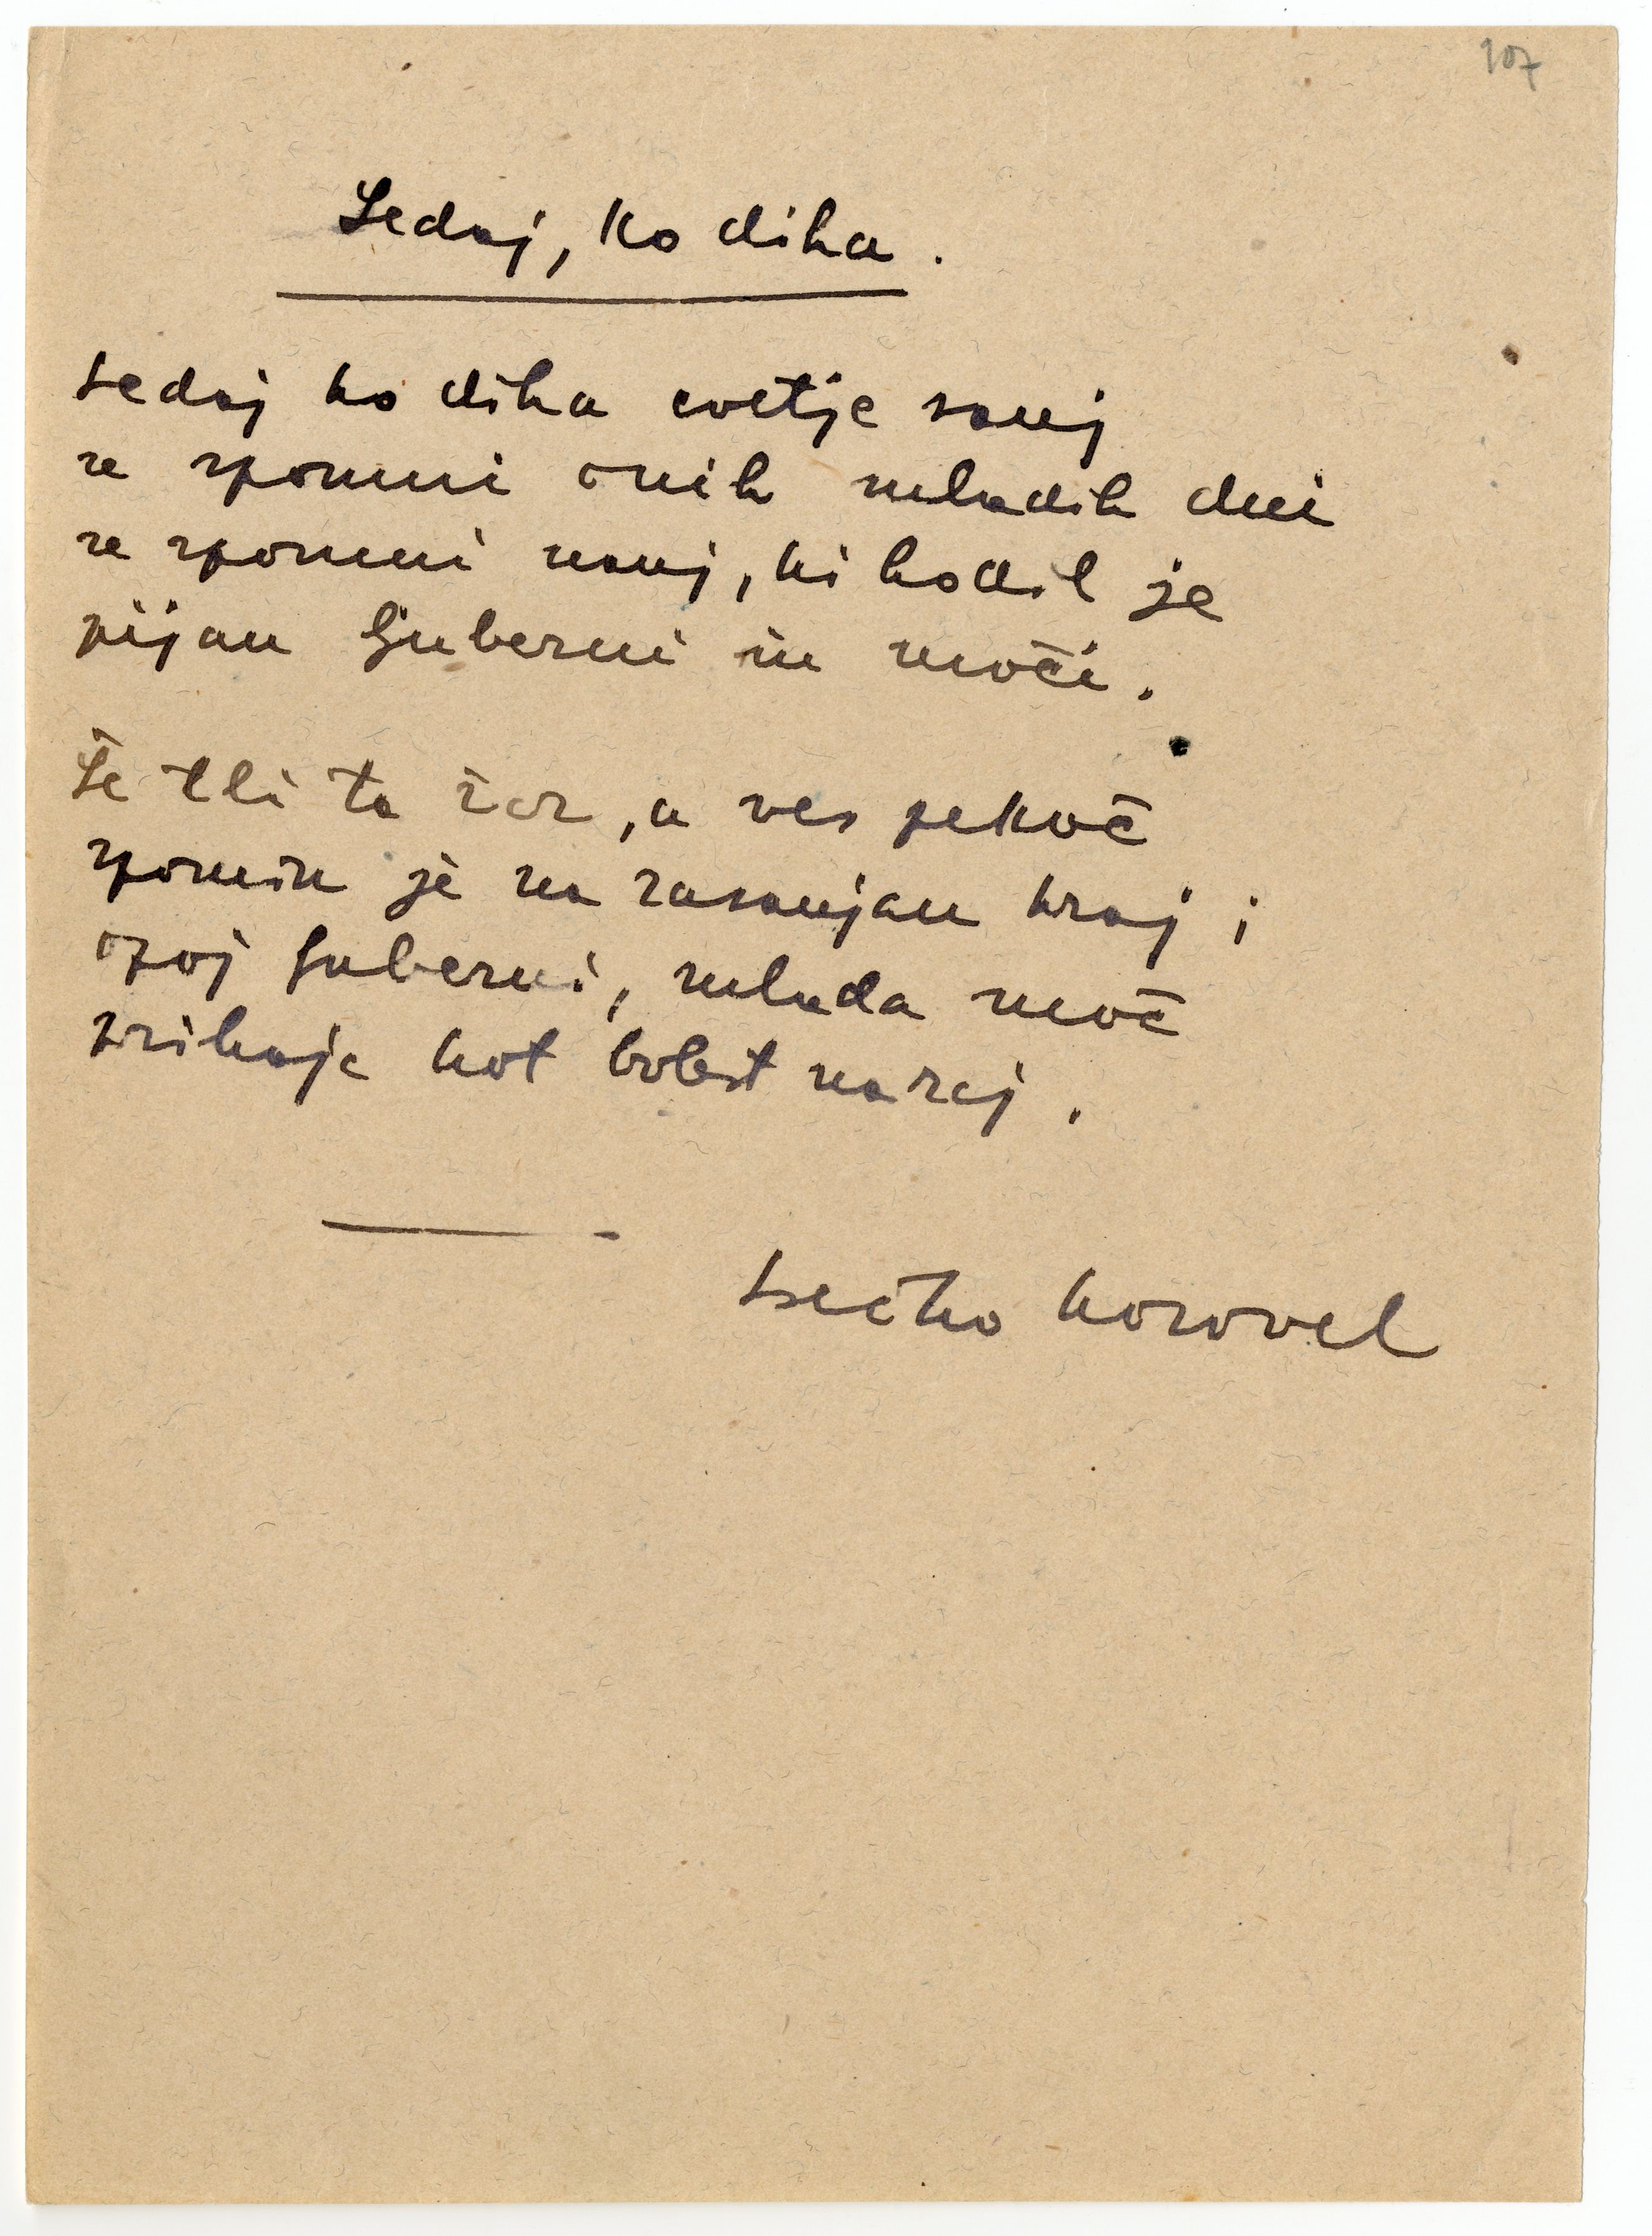 107
Sedaj, ko diha.
Sedaj ko diha cvetje sanj
se spomni onih mladih dni
se spomni nanj, ki hodil je
pijan ljubezni in moči.
Še tli ta žar, a ves pekoč
spomin je na zasanjan kraj;
opoj ljubezni, mlada moč
prihaja kot bolest nazaj.
Srečko Kosovel